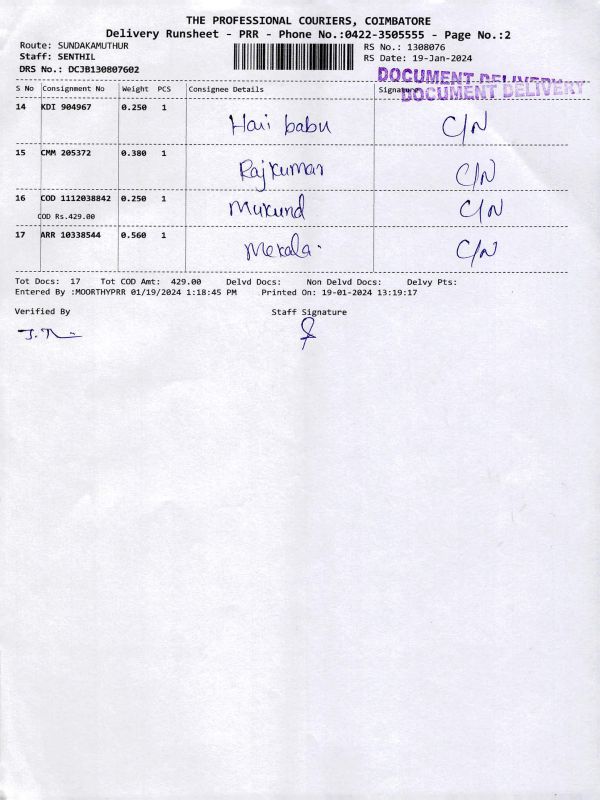 THE PROFESSIONAL COURIERS, COIMBATORE
Delivery Runsheet - PRR - Phone No.:0422-3505555 - Page No.:2
Route: SUNDAKAMUTHUR
RS No.: 1308076
Staff: SENTHIL
RS Date: 19-Jan-2024
DRS No.: DCJB130807602
DOCUMENT DELIVERY
DOCUMENT DELIVERY
S No Consignment No Weight PCS Consignee Details Signature
14 KDI 904967 0.250 1 Hari babu C/N
15 CMM 205372 0.380 1 Rajkumar C/N
16 COD 1112038842 0.250 1 Mukund C/N
COD Rs.429.00
17 ARR 10338544 0.560 1 Mekala. C/N
Tot Docs: 17 Tot COD Amt: 429.00 Delvd Docs: Non Delvd Docs: Delvy Pts:
Entered By :MOORTHYPRR 01/19/2024 1:18:45 PM Printed On: 19-01-2024 13:19:17
Verified By Staff Signature